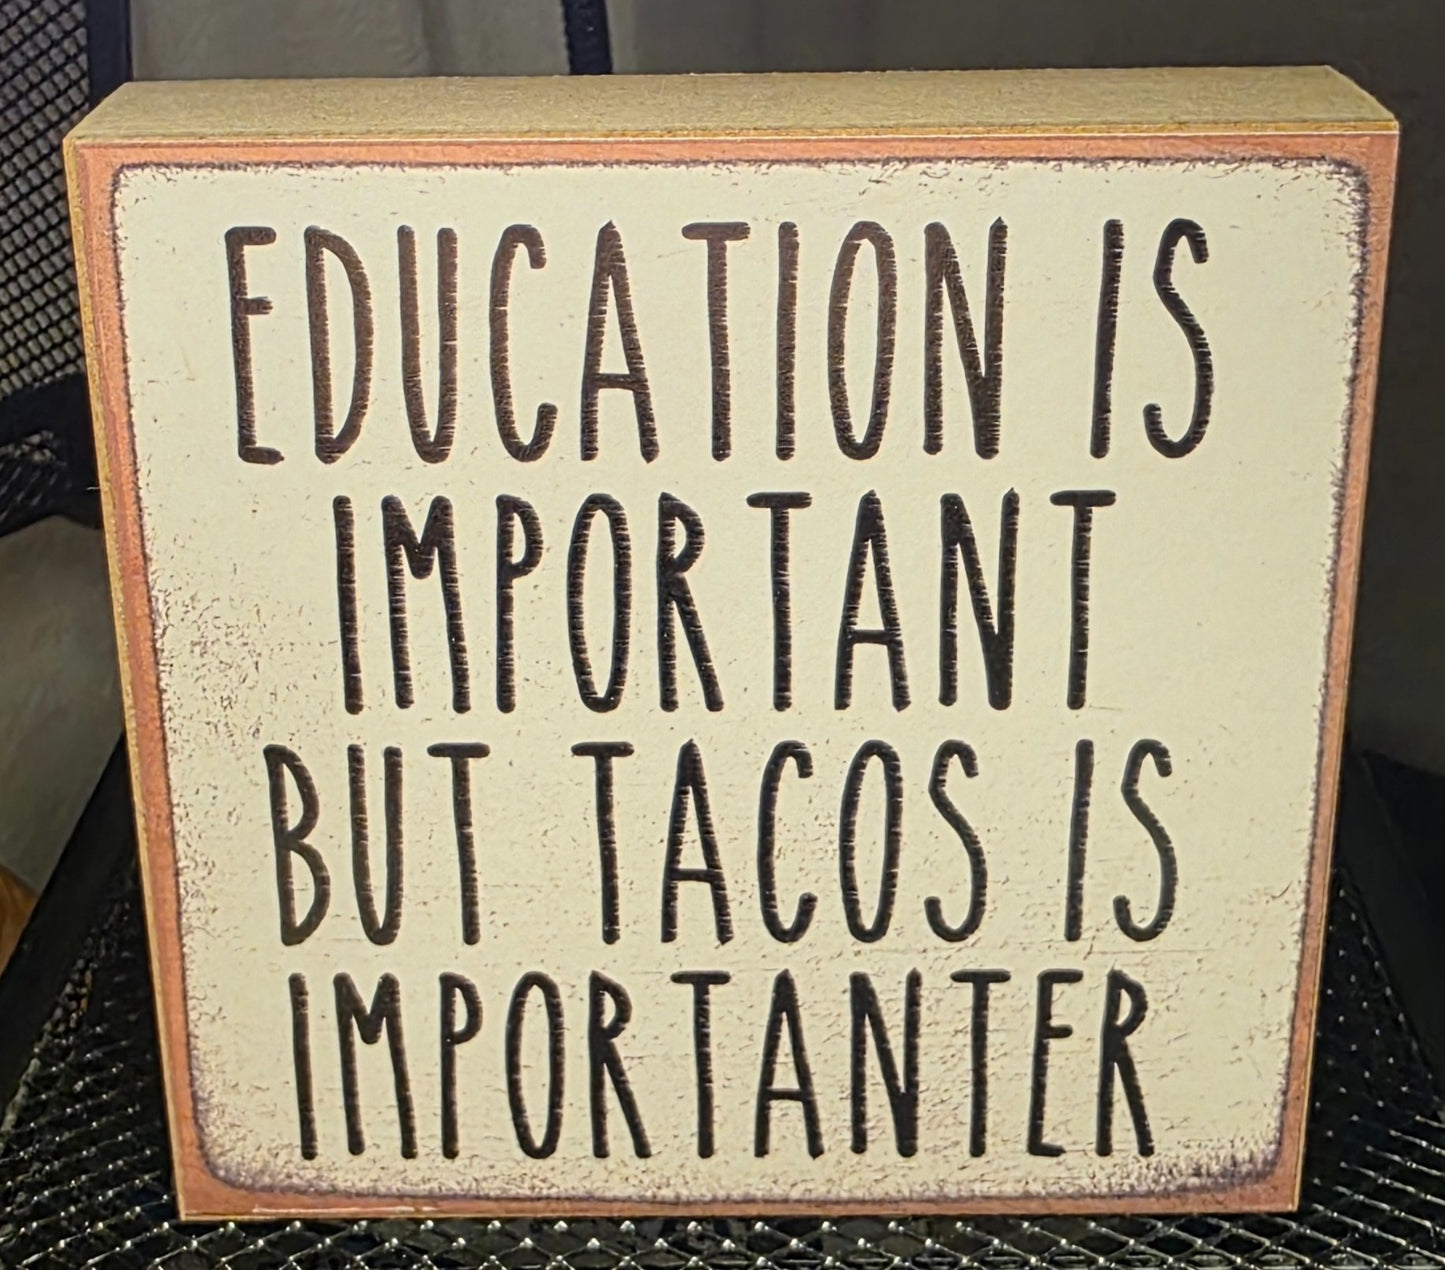 EDUCATION IS
IMPORTANT
BUT TACOS IS
IMPORTANTER